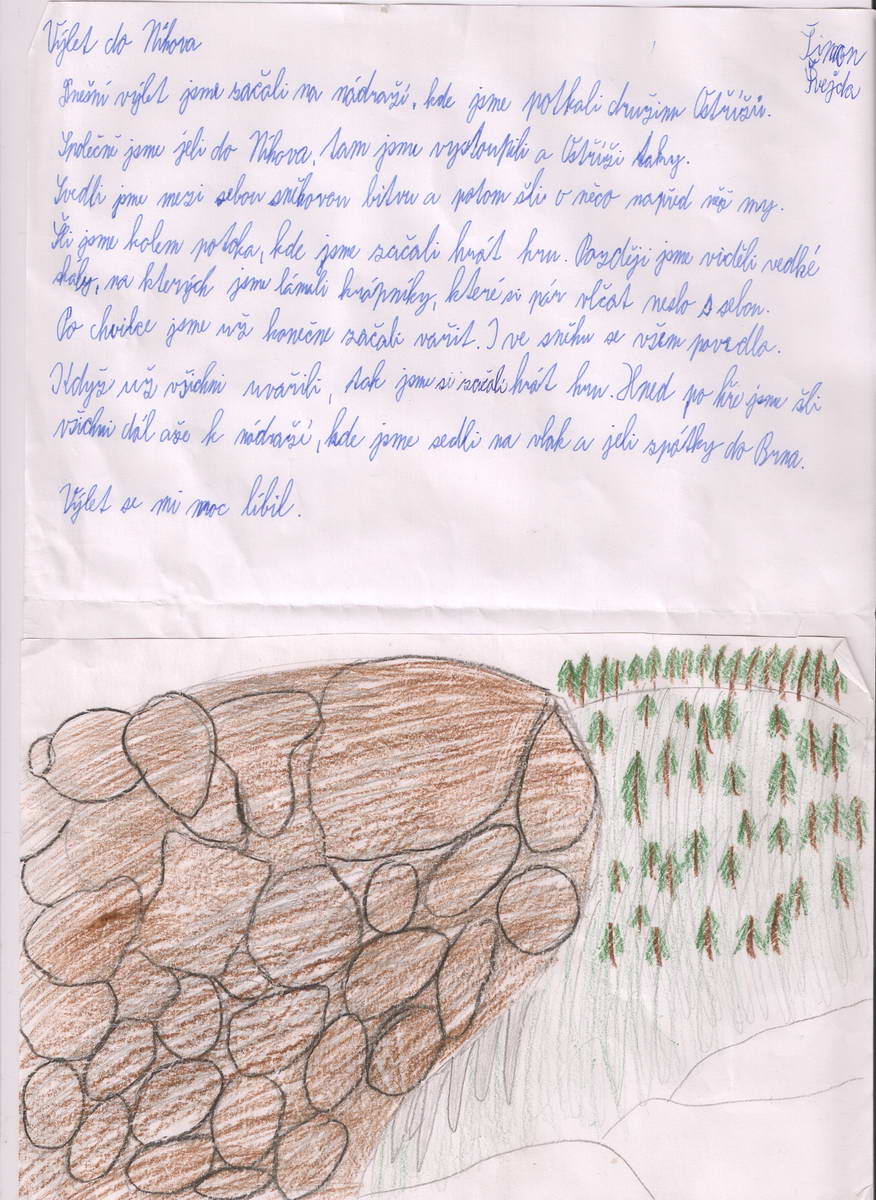 Výlet do Níhova
Šimon
Švejda
Dnešní výlet jsme začali na nádraží, kde jsme potkali družinu Ostřížů.
Společně jsme jeli do Níhova, tam jsme vystoupili a Ostříži taky.
Svedli jsme mezi sebou sněhovou bitvu a potom šli o něco napřed než my.
Šli jsme kolem potoka, kde jsme začali hrát hru. Později jsme viděli velké
skály, na kterých jsme lámali krápníky, které si pár vlčat neslo s sebou.
Po chvilce jsme už konečne začali vařit. I ve sněhu se všem povedlo.
Když už všichni uvařili, tak jsme si začali hrát hru. Hned po hře jsme šli
všichni dál aže k nádraží, kde jsme sedli na vlak a jeli zpátky do Brna.
Výlet se mi moc líbil.